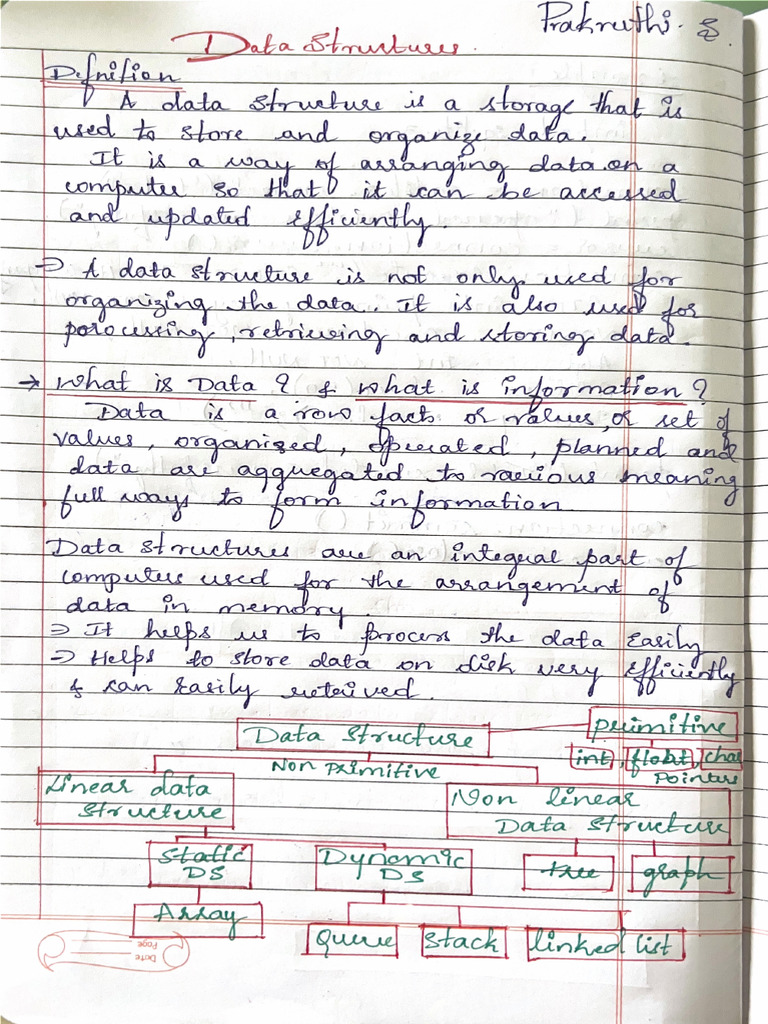 Prakruthi. S.
Data Structures.
Defnition
A data structure is a storage that is
used to store and organize data.
It is a way of arranging data on a
computer so that it can be accessed
and updated efficiently.
→ A data structure is not only used for
organizing the data. It is also used for
porocessing, retrieving and storing data.
→ What is Data ? & What is information ?
Data is a row facts or values, or set of
values, organized, operated, planned and
data are aggregated to various meaning
full ways to form information
Data structures are an integral part of
computers used for the arrangement of
data in memory.
⇒ It helps us to process the data easily
⇒ Helps to store data on disk very efficiently
& can easily retrived.
Data structure
primitive
int, float, char
pointers
Non primitive
Linear data
structure
Non linear
Data structure
Static
DS
Dynamic
DS
tree
graph
Array
Queue
stack
linked list
Date
Page